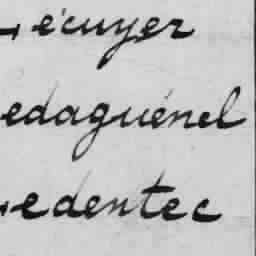 Lécuyer
Ledaguénel
Ledentec